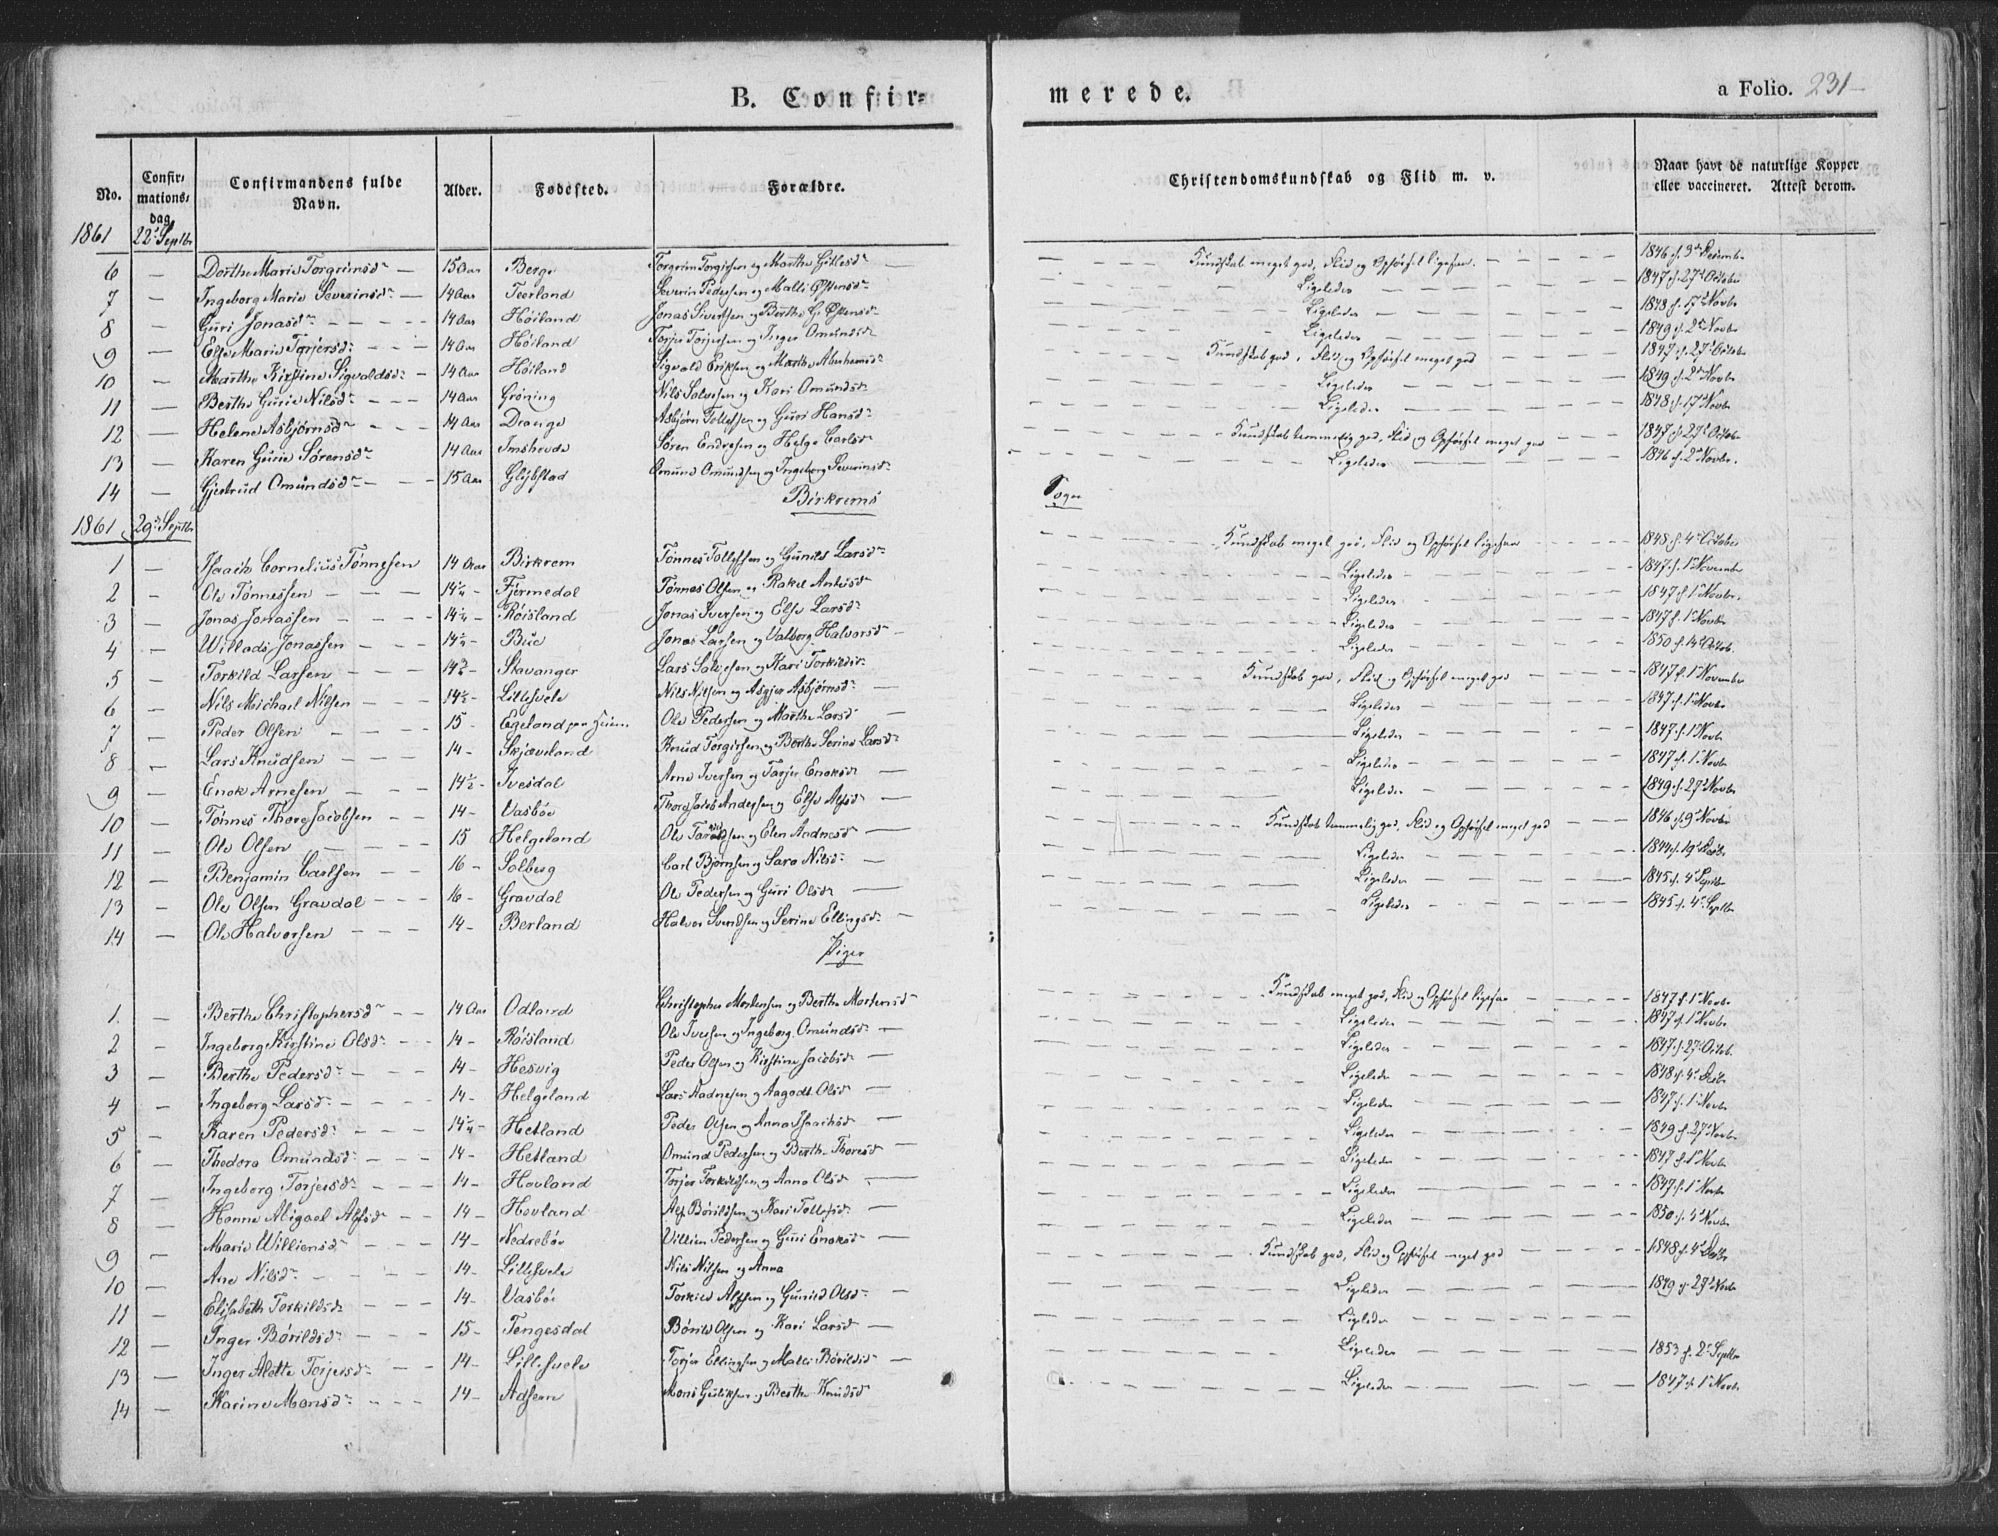 B. Confir=
merede.
a Folio. 231
No.
Confir-
mations-
dag
Confirmandens fulde
Navn.
Alder.
Fødested.
Forældre.
Christendomskundskab og Flid m. v.
Naar havt de naturlige Kopper
eller vaccineret. Attest derom.
1861 22d Septbr
6 — Dorthe Marie Torgrimsdr — 15 Aar Berge Torgrim Torgersen og Marthe — Kundskab meget god, Flid og Opførsel ligesaa. 1846 d. 3d Decembr
7 — Ingeborg Marie Severinsdr — 14 Aar Teerland Severin Pedersen og Malli Østensdr Ligeledes 1847 d. 27d Octobr
8 — Guri Jonasdr — 14 Aar Høiland Jonas Sivertsen og Berthe G. Østensdr Ligeledes 1848 d. 17d Novbr
9 — Else Marie Torjersdr — 14 Aar Høiland Torjer Torjersen og Inger Omundsdr Ligeledes 1849 d. 2d Novbr
10 — Marthe Kirstine Sigvaldsdr — 14 Aar Høiland Sigvald Eriksen og Marthe Abrahamsdr Kundskab god, Flid og Opførsel meget god 1847 d. 27d Octobr
11 — Berthe Gurie Nilsdr — 14 Aar Grøning Nils Salvesen og Kari Omundsdr Ligeledes 1849 d. 2d Novbr
12 — Helene Asbjørnsdr — 14 Aar Drange Asbjørn Tollefsen og Guri Hansdr Ligeledes 1848 d. 17d Novbr
13 — Karen Gurie Sørensdr 14 Aar Søren Endresen og Helge Carlsdr Kundskab temmelig god, Flid og Opførsel meget god 1847 d. 27d Octobr
14 — Gjertrud Omundsdr — 15 Aar Omund Omundsen og Ingeborg Severinsdr Ligeledes 1846 d. 2d Novbr.
Birkrems Sogn
1861 29d Septbr
1 — Isaach Cornelius Tønnesen 14 Aar Birkrem Tønnes Tollefsen og Gunild Larsdr Kundskab meget god, Flid og Opførsel ligesaa 1848 d. 4d Octobr
2 — Ole Tønnessen — 14¼ - Fjermedal Tønnes Olsen og Rakel Ligeledes 1847 d. 1d Novembr
3 — Jonas Jonassen — 14¼ - Røisland Jonas Iversen og Else Larsdr Ligeledes 1847 d. 1d Novbr.
4 — Willads Jonassen — Bue Jonas Larsen og Valborg Halvorsdr — Ligeledes 1847 d. 1d Novbr
5 — Torkild Larsen — Stavanger Lars Salvesen og Kari Torkildsdr Ligeledes 1850 d. 14d Octob.
6 — Nils Michael Nilsen — 14½ - Lillesvele Nils Nilsen og Asgjer Asbjørnsdr — Kundskab god, Flid og Opførsel meget god 1847 d. 1d Novembr
7 — Peder Olsen — 15 - Egeland Ole Pedersen og Marthe Larsdr — Ligeledes 1847 d. 1d Novbr
8 — Lars Knudsen — 14 - Skjæveland Knud Torgersen og Berthe Serine Larsdr Ligeledes 1847 d. 1d Novbr
9 — Enok Arnesen — 14½ - Ivesdal Arne Iversen og Tarjer Enoksdr — Ligeledes 1847 d. 1d Novbr
10 — Tønnes Thore Jacobsen — 14 - Vasbøe Thore Jacob Andersen og Else Alfsdr — Ligeledes 1849 d. 27d Novbr
11 — Ole Olsen — 15 Helgeland Ole og Elen Andresdr — Kundskab temmelig god, Flid og Opførsel meget god 1846 d. 9d Novbr
12 — Benjamin Carlsen — 16 - Solberg Carl Bjørnsen og Sara Nilsdr — Ligeledes 1844 d. 19d Decbr
13 — Ole Olsen Gravdal — 16 - Gravdal Ole Pedersen og Guri Olsdr — Ligeledes 1845 d. 4d Septbr
14 — Ole Halvorsen — 14 - Berland Halvor Svendsen og Serine Ellingsdr — Ligeledes 1845 d. 4d Septbr
Piger
1 — Berthe Christophersdr — 14 Aar Odland Christopher Mortensen og Berthe Mortensdr Kundskab meget god, Flid og Opførsel ligesaa 1847 d. 1d Novbr
2 — Ingeborg Kirstine Olsdr — 14 - Røisland Ole Iversen og Ingeborg Omundsdr — Ligeledes 1847 d. 1d Novbr
3 — Berthe Pedersdr — 14 - Hesvig Peder Olsen og Kirstine Jacobsdr — Ligeledes 1847 d. 27d Octob.
4 — Ingeborg Larsdr — 14 - Helgeland Lars Aadnesen og Aagodt Olsdr — Ligeledes 1848 d. 4d Decbr
5 — Karen Pedersdr — 14¼ - Hetland Peder Olsen og Anna Isaachsdr — Ligeledes 1847 d. 1d Novbr
6 — Thodora Omundsdr — 14 - Hetland Omund Pedersen og Berthe Thoresdr Ligeledes 1849 d. 27d Novbr
7 — Ingeborg Torjersdr — 14 - Hovland Torjer Torkildsen og Anna Olsdr — Ligeledes 1847 d. 1d Novbr
8 — Hanne Abigael Alfsdr — 14 - Hovland Alf Børildsen og Kari Tollefsdr — Ligeledes 1847 d. 1d Novbr
9 — Marie Williensdr — 14 - Nedrebøe Villien Pedersen og Guri Enoksdr — Ligeledes 1850 d. 5d Novbr
10 — Ane Nilsdr — 14 - Lillesvele Nils Nilsen og Anna Kundskab god, Flid og Opførsel meget god 1848 d. 4d Decbr
11 — Elisabeth Torkildsdr 14 - Vasbøe Torkild Alfsen og Gunild Olsdr — Ligeledes 1849 d. 27d Novbr
12 — Inger Børildsdr — 15 - Tengesdal Børild Olsen og Kari Larsdr — Ligeledes
13 — Inger Alette Torjersdr — 14 - Lillesvele Torjer Ellingsen og Malli Børildsdr — Ligeledes 1853 d. 2d Septbr
14 — Karine Monsdr — 14 - Adseen Mons Gulliksen og Berthe Knudsdr Ligeledes 1847 d. 1d Novbr